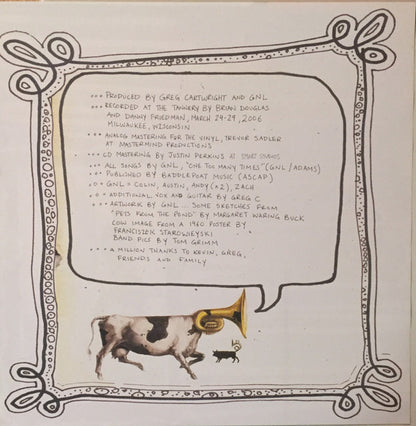 ... PRODUCED BY GREG CARTWRIGHT AND GNL
... RECORDED AT THE TANNERY BY BRIAN DOUGLAS
AND DANNY FRIEDMAN, MARCH 24-29, 2006
MILWAUKEE, WISCONSIN
... ANALOG MASTERING FOR THE VINYL, TREVOR SADLER
AT MASTERMIND PRODUCTIONS
... CD MASTERING BY JUSTIN PERKINS AT SMART STUDIOS
... ALL SONGS BY GNL, "ONE TOO MANY TIMES" (GNL/ADAMS)
... PUBLISHED BY BADDLEPOAT MUSIC (ASCAP)
... GNL = COLIN, AUSTIN, ANDY (x2), ZACH
... ADDITIONAL VOX AND GUITAR BY GREG C
... ARTWORK BY GNL ... SOME SKETCHES FROM
"PETS FROM THE POND" BY MARGARET WARING BUCK
COW IMAGE FROM A 1960 POSTER BY
FRANCISZEK STAROWIEYSKI
BAND PICS BY TOM GRIMM
.... A MILLION THANKS TO KEVIN, GREG,
FRIENDS AND FAMILY